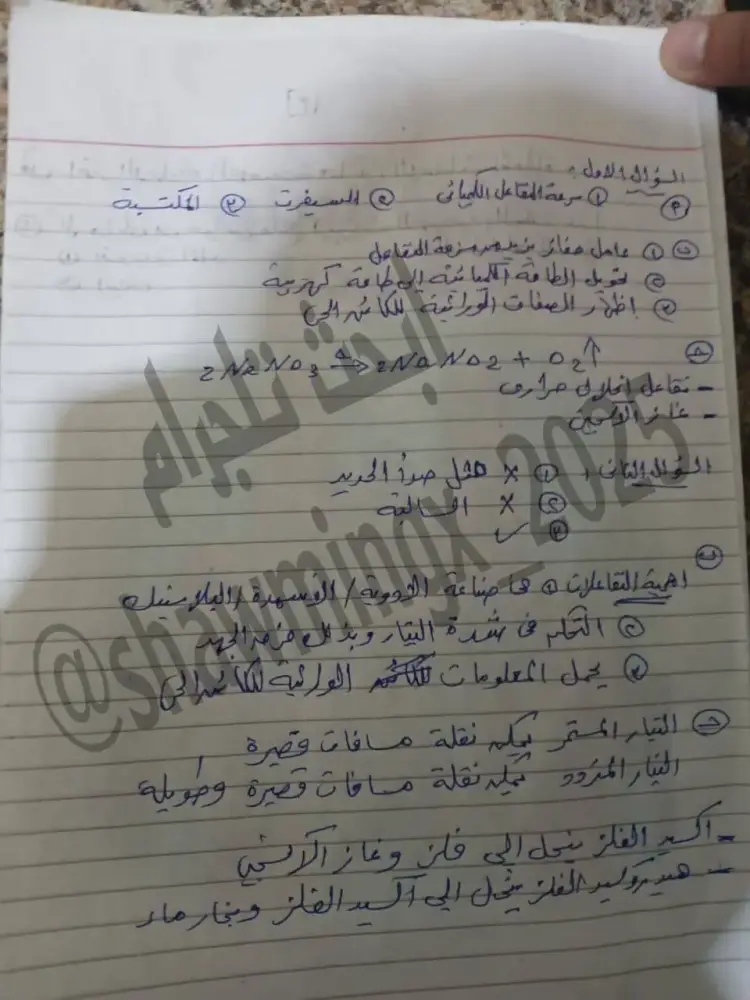 السؤال الاول:
(P) ① سرعة التفاعل الكيميائى ② السيفرت ③ المكتسبة
(ب) ① عامل حفاز يزيد من سرعة التفاعل
② تحويل الطاقة الكيميائية إلى طاقة كهربية
③ اظهار الصفات الوراثية للكائن الحى
(ج) 2NaNO3 →Δ 2NaNO2 + O2↑
- تفاعل انحلال حرارى
- غاز الاكسجين
السؤال الثانى: ① × مثل صدأ الحديد
② × السالبة
③ ✓
(ب) اهمية التفاعلات ① فى صناعة الادوية / الاسمدة / البلاستيك
② التحكم فى شدة التيار وبذلك فرق الجهد
③ يحمل المعلومات الوراثية للكائن الحى
(ج) التيار المستمر يمكن نقلة مسافات قصيرة
التيار المتردد يمكن نقلة مسافات قصيرة وطويلة
- اكسيد الفلز ينحل الى فلز وغاز الاكسجين
- هيدروكسيد الفلز ينحل الى اكسيد الفلز وبخار ماء
ابحث تلجرام
@shawmingx_2025